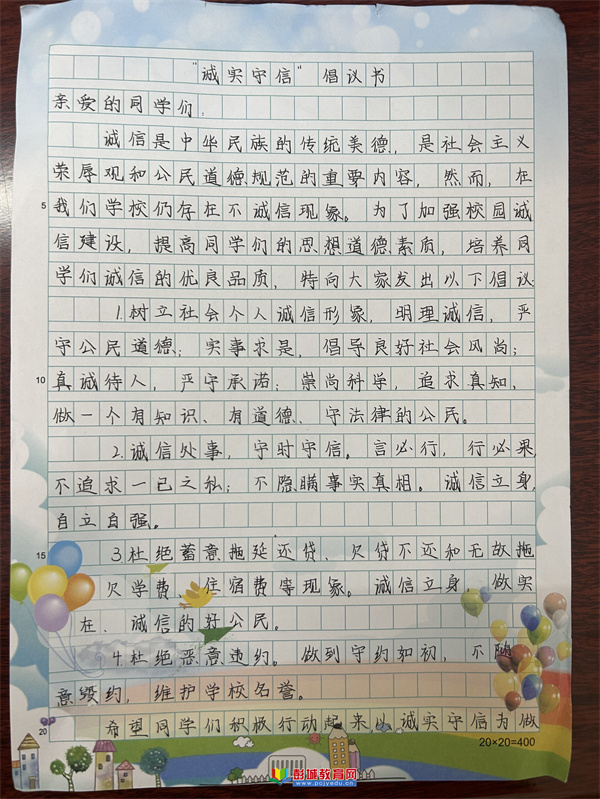 “诚实守信”倡议书
亲爱的同学们：
诚信是中华民族的传统美德，是社会主义
荣辱观和公民道德规范的重要内容，然而，在
5 我们学校仍存在不诚信现象。为了加强校园诚
信建设，提高同学们的思想道德素质，培养同
学们诚信的优良品质，特向大家发出以下倡议：
1.树立社会个人诚信形象，明理诚信，严
守公民道德；实事求是，倡导良好社会风尚；
10 真诚待人，严守承诺；崇尚科学，追求真知，
做一个有知识、有道德、守法律的公民。
2.诚信处事，守时守信。言必行，行必果，
不追求一已之私；不隐瞒事实真相。诚信立身，
自立自强。
15 3.杜绝蓄意拖延还贷、欠贷不还和无故拖
欠学费、住宿费等现象。诚信立身，做实
在、诚信的好公民。
4.杜绝恶意违约。做到守约如初，不随
意毁约，维护学校名誉。
20 希望同学们积极行动起来，以诚实守信为做
20×20=400
彭城教育网
www.pcjyedu.cn